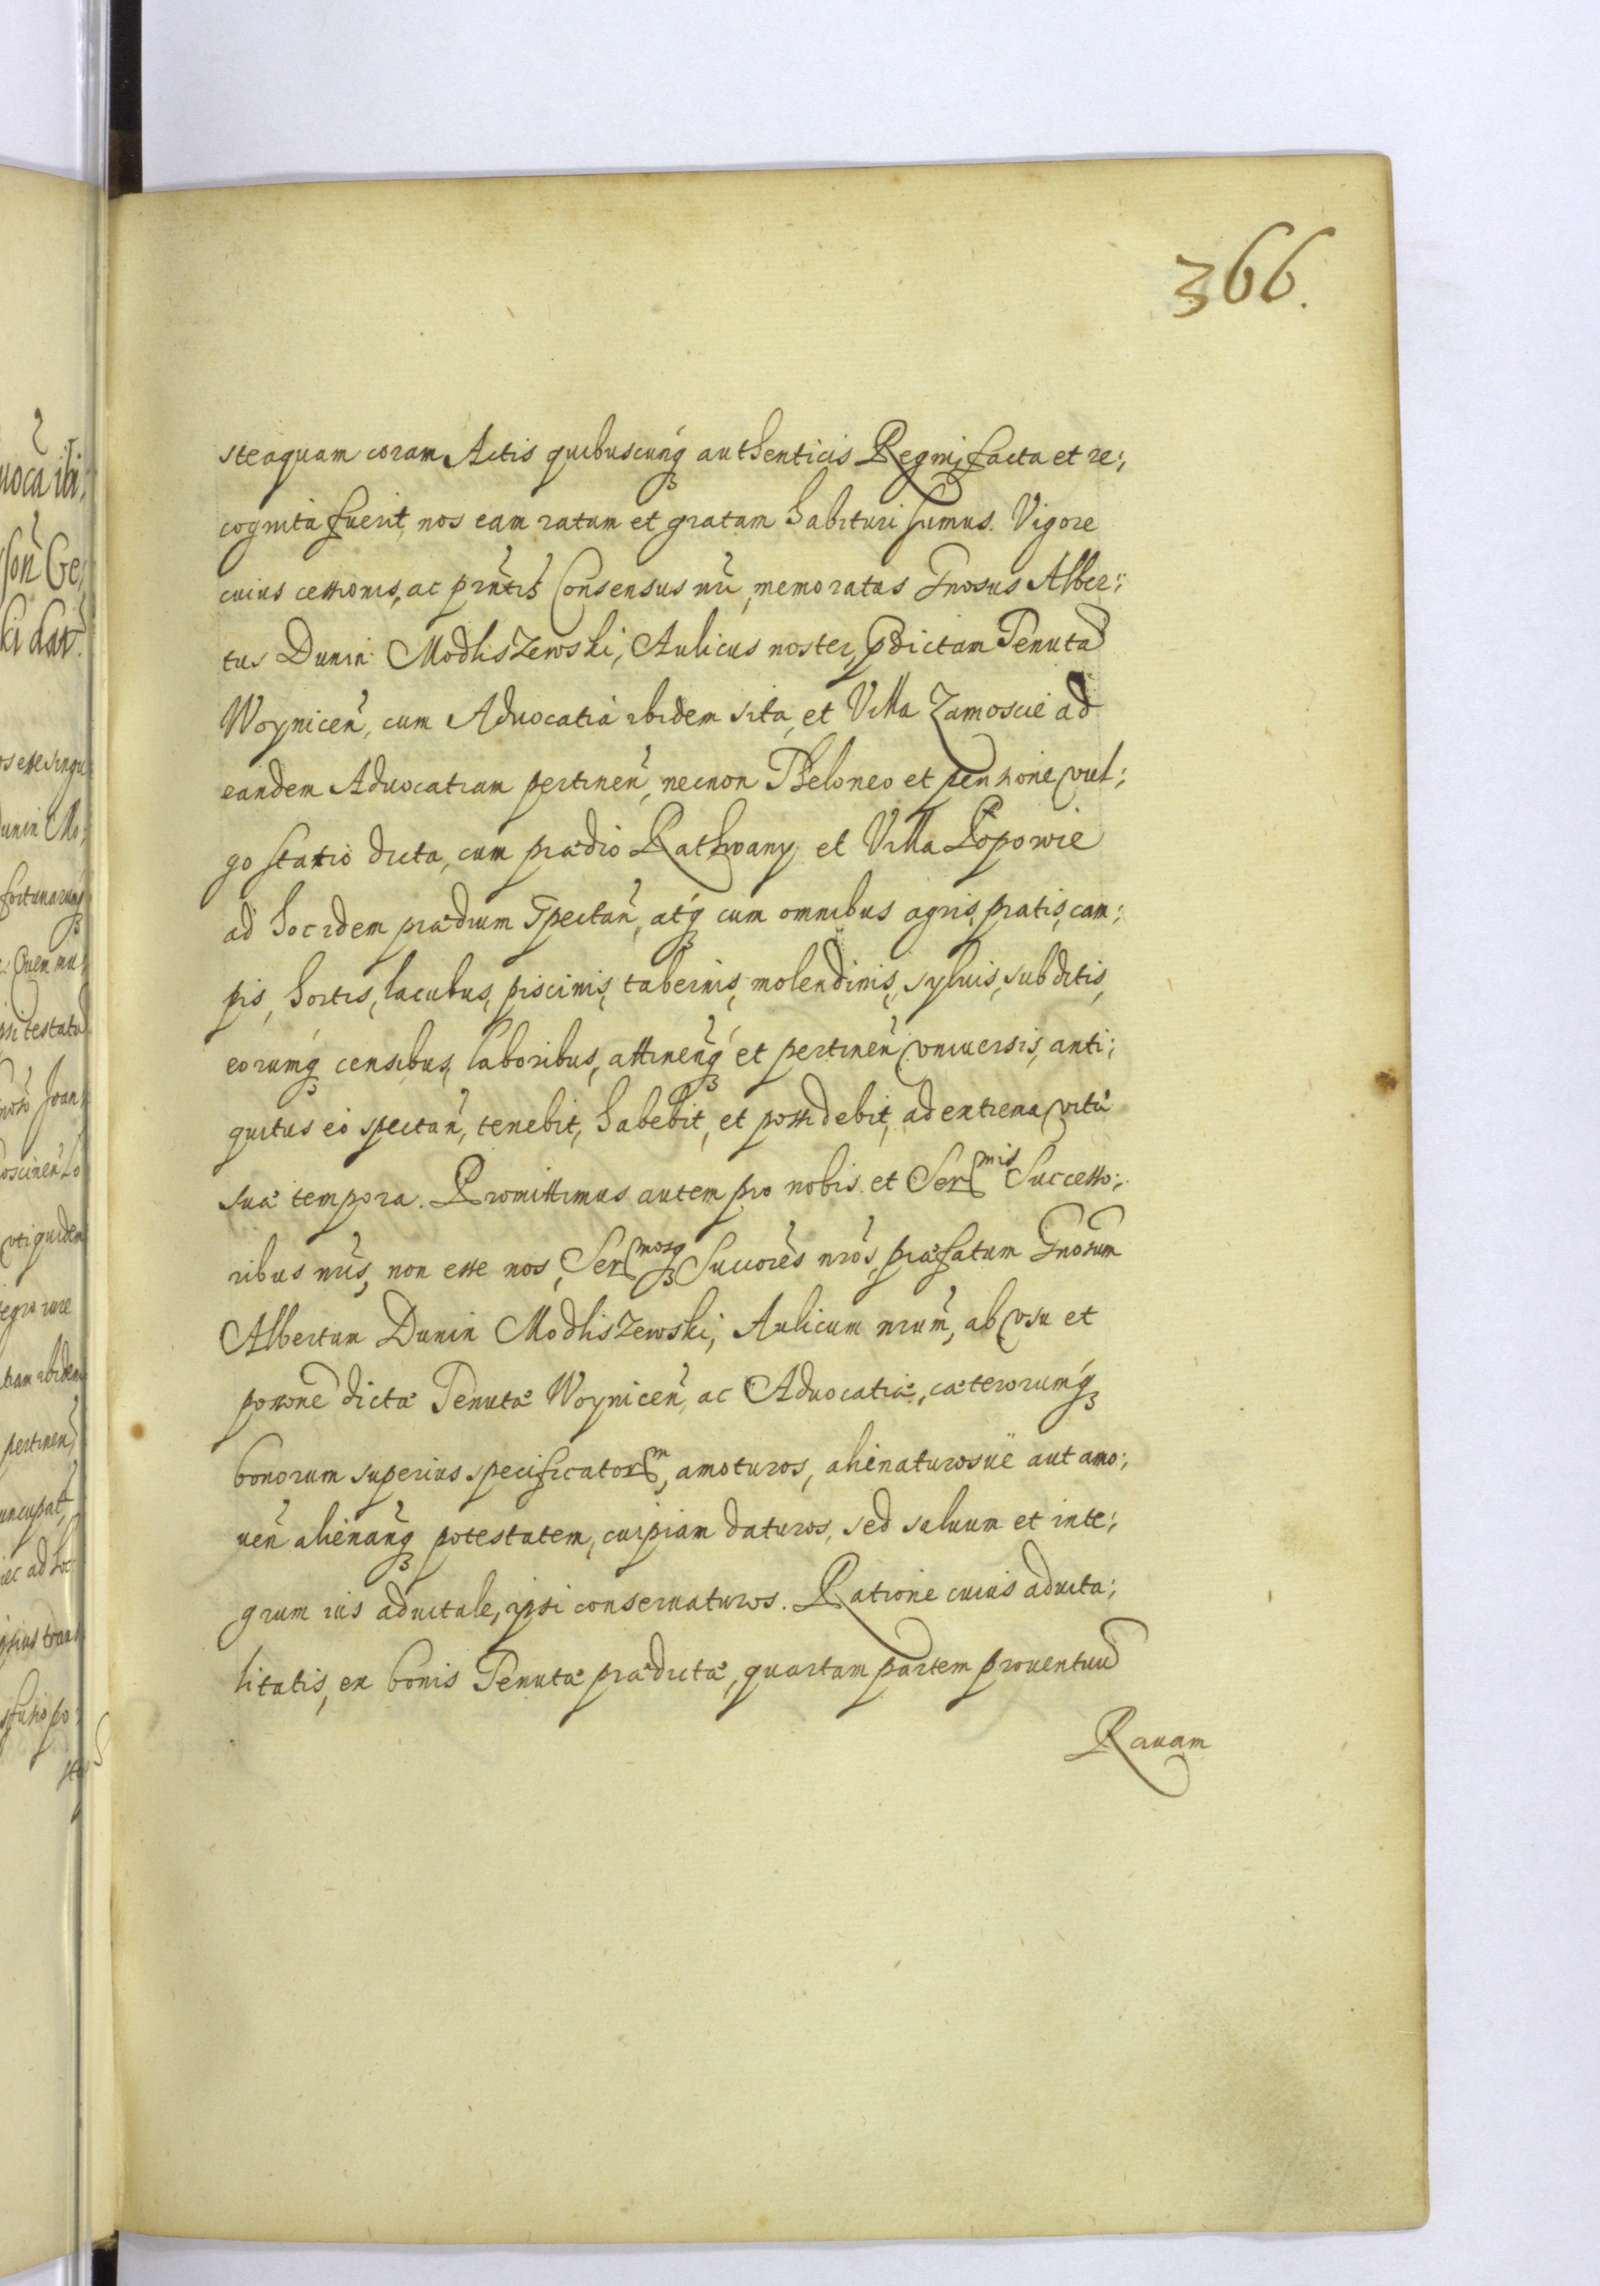 366.
steaquam coram Actis quibuscunq́ authenticis Regni, facta et re:,
cognita fuerit, nos eam ratam et gratam habituri sumus. Vigore
cuius cessionis, ac prñtis Consensus nr̃i, memoratus Gnosus Alber:,
tus Dunin Modliszewski, Aulicus noster, pdictam Tenutã
Woynicen̄, cum Aduocatia ibidem sita, et Villa Zamoscie ad
eandem Aduocatiam pertinen̄, necnon Theloneo et pensione vul:,
go statio dicta, cum prædio Rathwany et Villa Popowie
ad hoc idem prædium Spectan̄, atq́ cum omnibus agris, pratis, cam:,
pis, hortis, lacubus, piscinis, tabernis, molendinis, syluis, subditis,
eorumq́ censibus, laboribus, attinen̄q́ et pertinen̄ vniuersis, anti:,
quitus eò spectan̄, tenebit, habebit, et possidebit, ad extrema vitæ
suæ tempora. Promittimus autem pro nobis et Ser^mis Successo:,
ribus nr̃is, non esse nos, Ser^mosq Succores nr̃os, præfatum Gnosum
Albertum Dunin Modliszewski, Aulicum nrum̃, ab vsu et
possone dictæ Tenutæ Woynicen̄, ac Aduocatiæ, cæterorumq́
bonorum superius specificator^m, amoturos, alienaturosue aut amo:,
uen̄ alienan̄q potestatem, cuipiam daturos, sed saluum et inte:,
grum ius aduitale, ipsi conseruaturos. Ratione cuius aduita:,
litatis, ex bonis Tenutæ prædictæ, quartam partem prouentuũ
Rauam